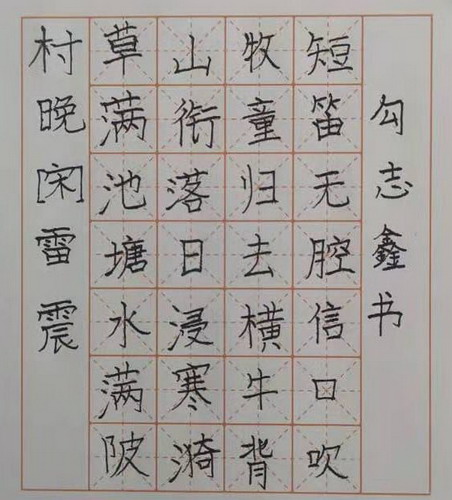 村晚[宋]雷震
草满池塘水满陂
山衔落日浸寒漪
牧童归去横牛背
短笛无腔信口吹
勾志鑫书